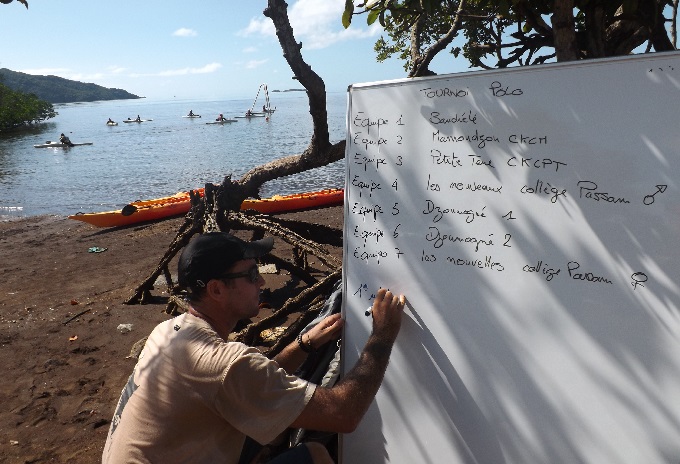 TOURNOI POLO
Equipe 1 Sandiélé
Equipe 2 Mamoudzou CKCM
Equipe 3 Petite Terre CKCPT
Equipe 4 les nouveaux collège Passam ♂
Equipe 5 Dzoumogné 1
Equipe 6 Dzoumogné 2
Equipe 7 les nouvelles collège Passam ♀